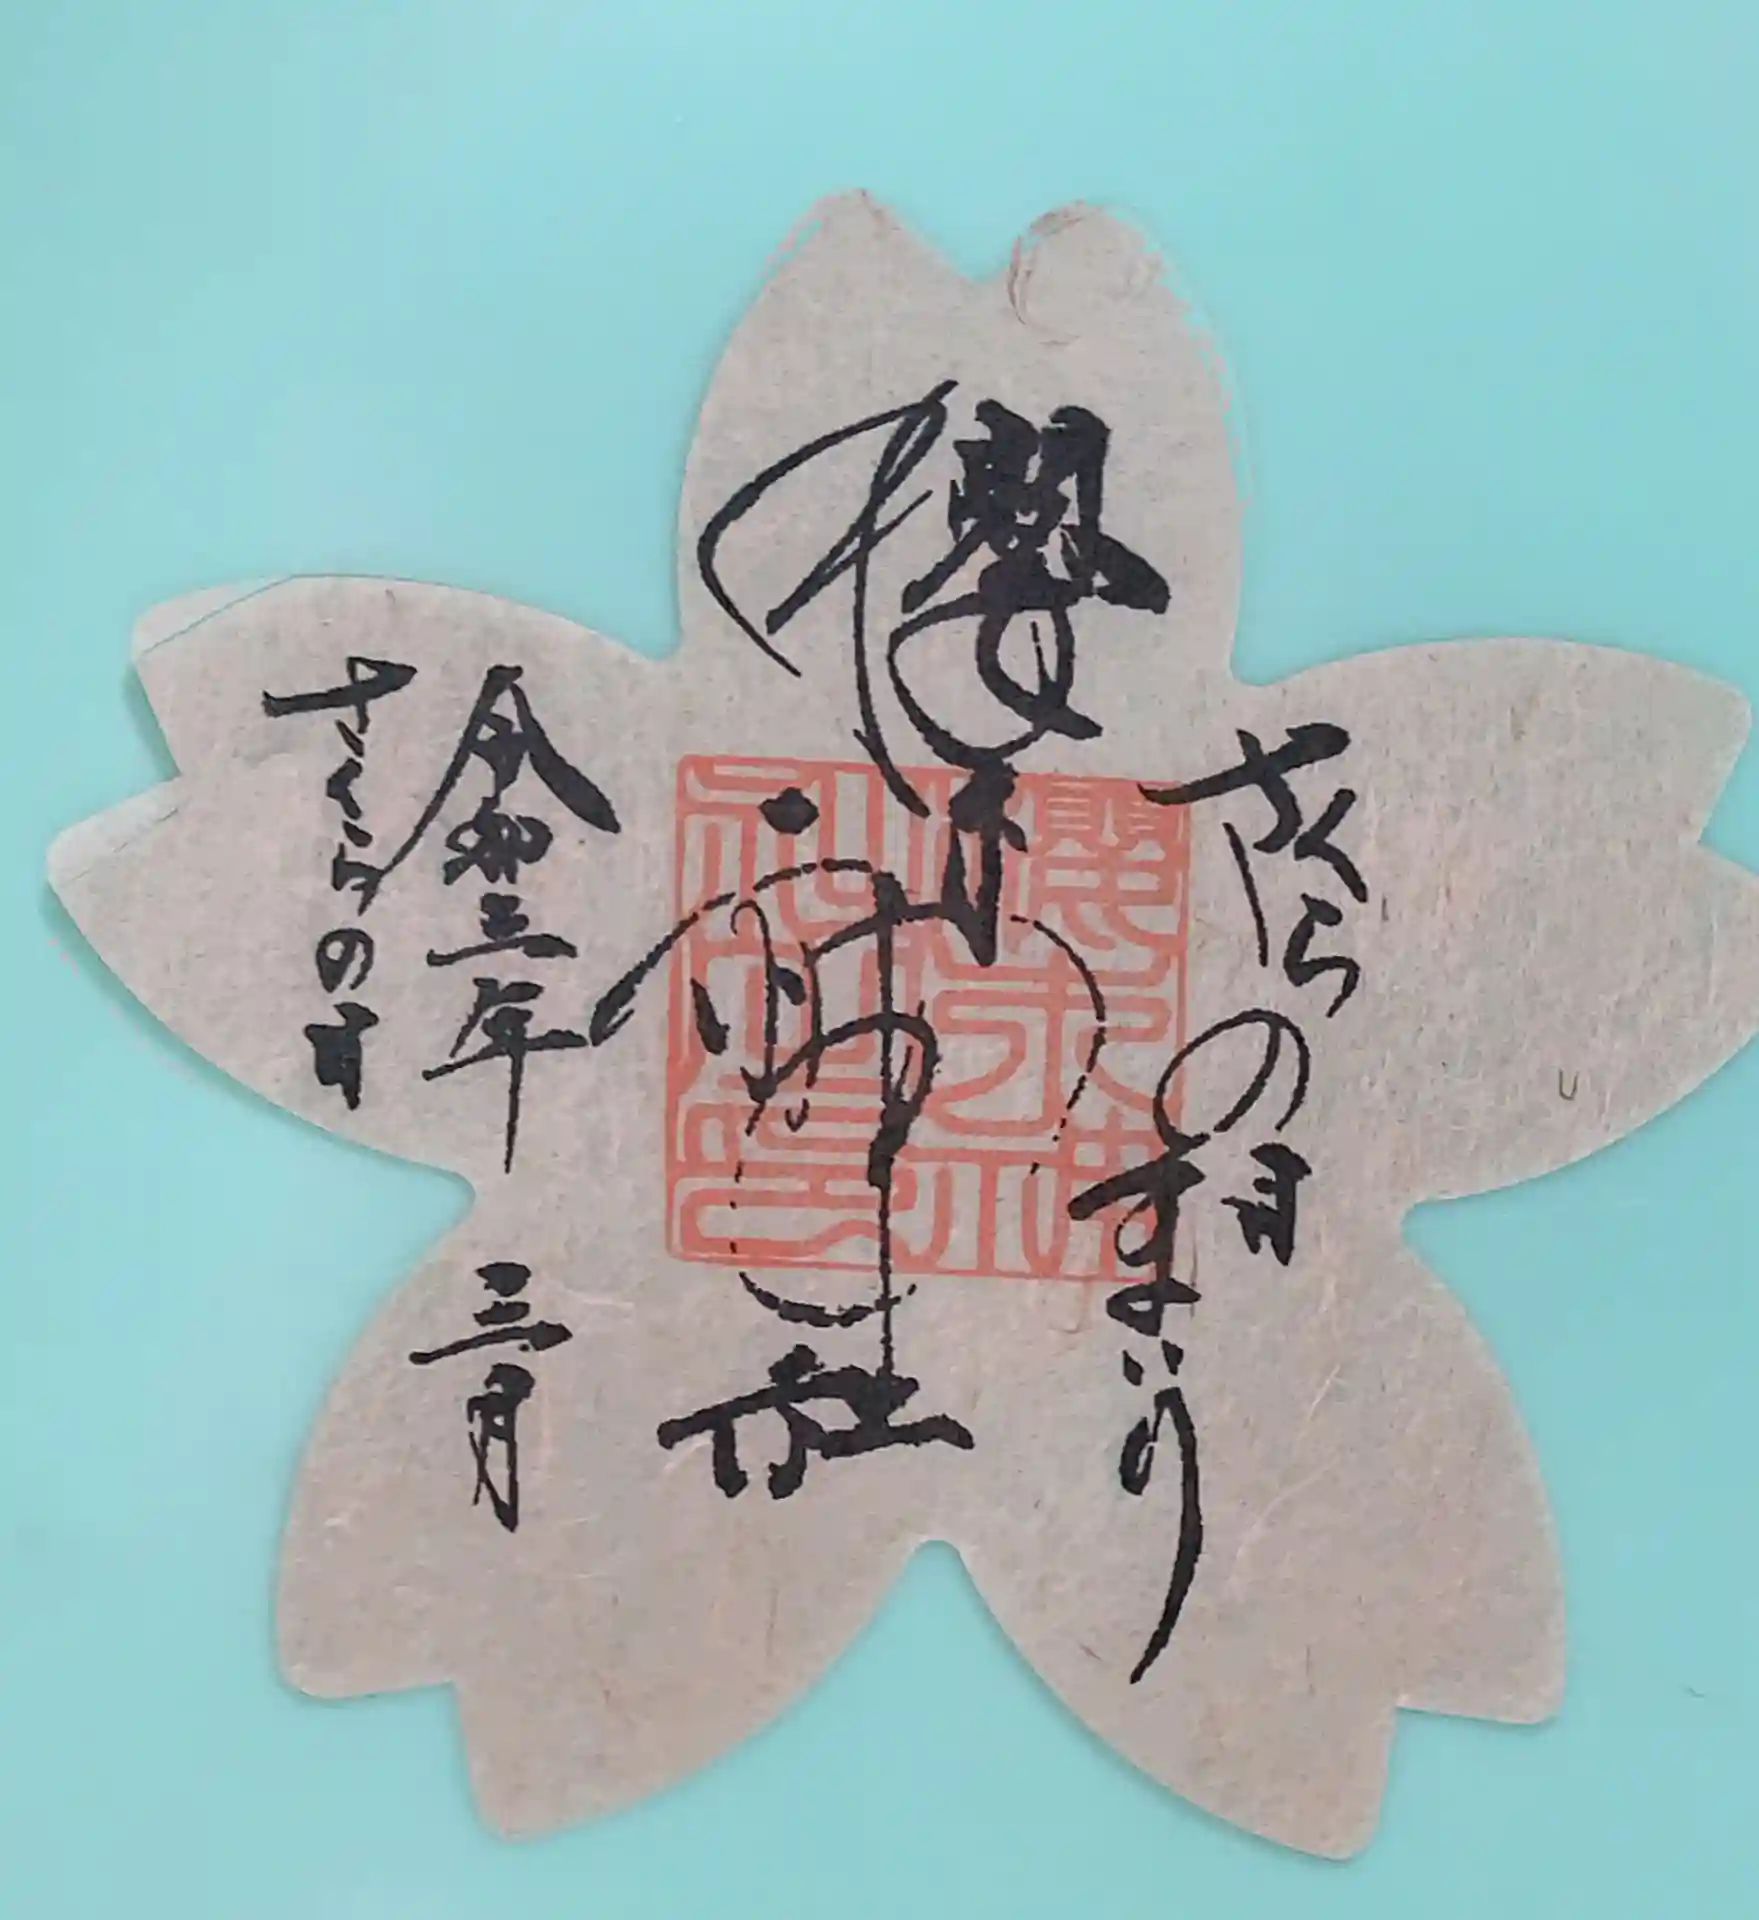 さくらの月まいり
櫻木神社
令和三年 三月
さくらの月
櫻木神社之印